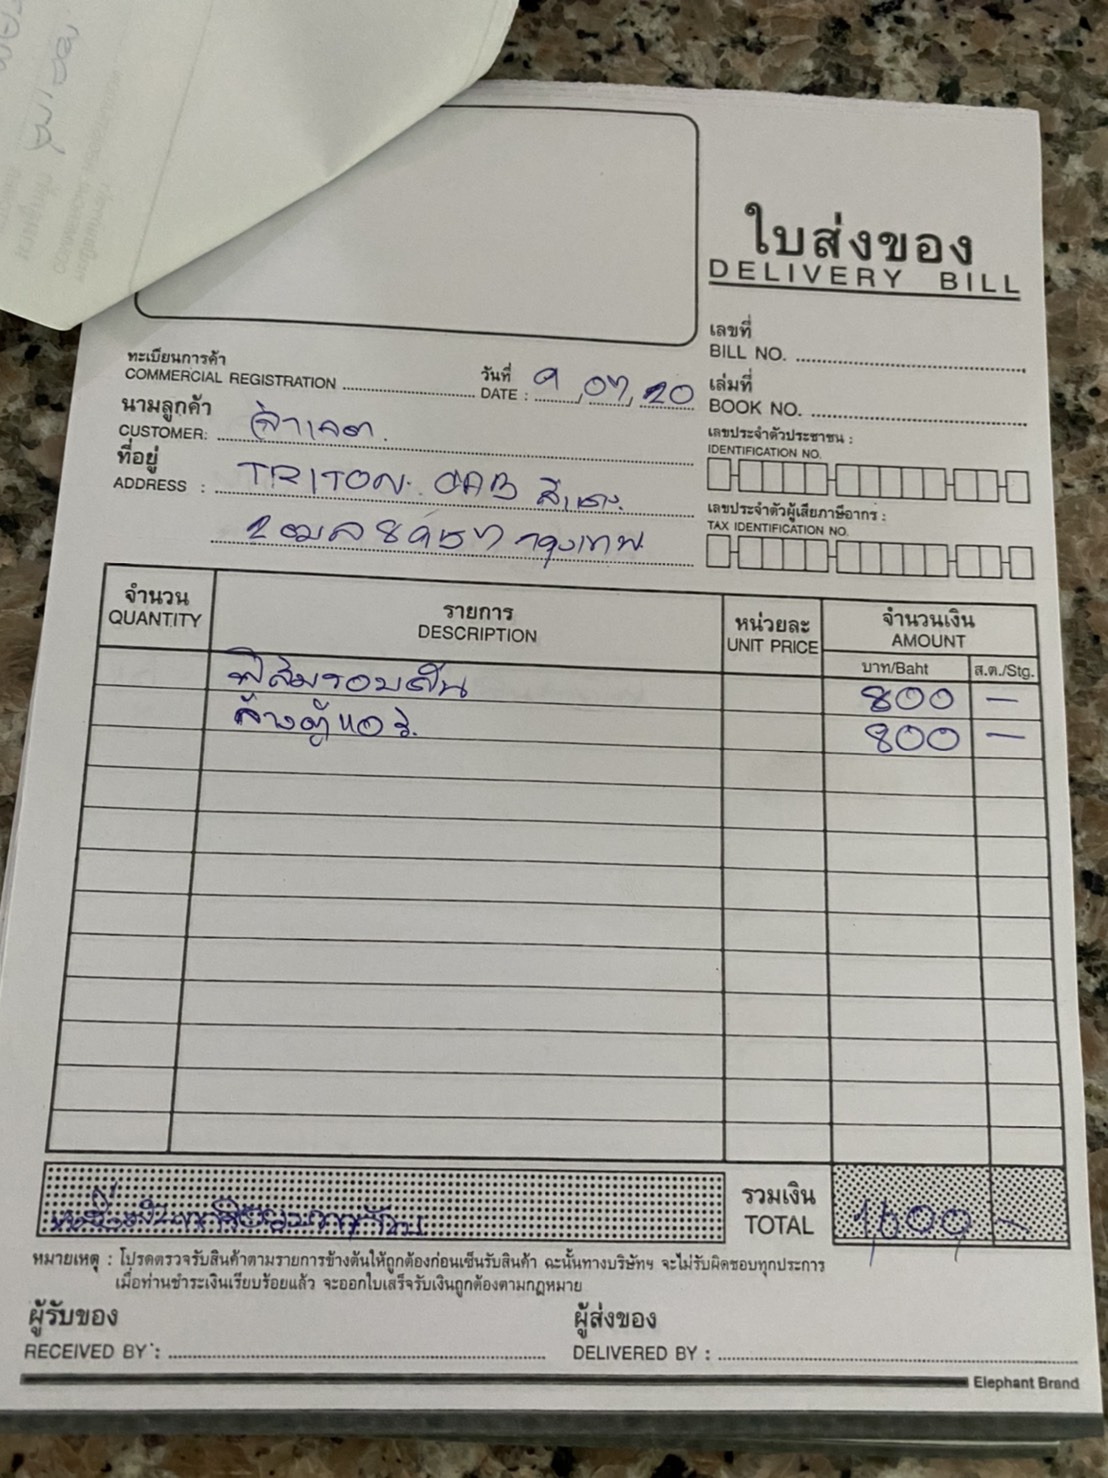 ใบส่งของ
DELIVERY BILL
เลขที่
BILL NO.
ทะเบียนการค้า
COMMERCIAL REGISTRATION
วันที่
DATE : 9, 07, 20
เล่มที่
BOOK NO.
นามลูกค้า
CUSTOMER:
เลขประจำตัวประชาชน :
IDENTIFICATION NO.
ที่อยู่
ADDRESS : TRITON. CAB สีแดง.
เลขประจำตัวผู้เสียภาษีอากร :
TAX IDENTIFICATION NO.
กรุงเทพ
จำนวน รายการ หน่วยละ จำนวนเงิน
QUANTITY DESCRIPTION UNIT PRICE AMOUNT
บาท/Baht ส.ต./Stg.
ฟิล์มรอบคัน 800 –
ล้างตู้แอร์. 800 –
รวมเงิน
TOTAL 1,600, –
หมายเหตุ : โปรดตรวจรับสินค้าตามรายการข้างต้นให้ถูกต้องก่อนเซ็นรับสินค้า ฉะนั้นทางบริษัทฯ จะไม่รับผิดชอบทุกประการ
เมื่อท่านชำระเงินเรียบร้อยแล้ว จะออกใบเสร็จรับเงินถูกต้องตามกฎหมาย
ผู้รับของ ผู้ส่งของ
RECEIVED BY : DELIVERED BY :
Elephant Brand